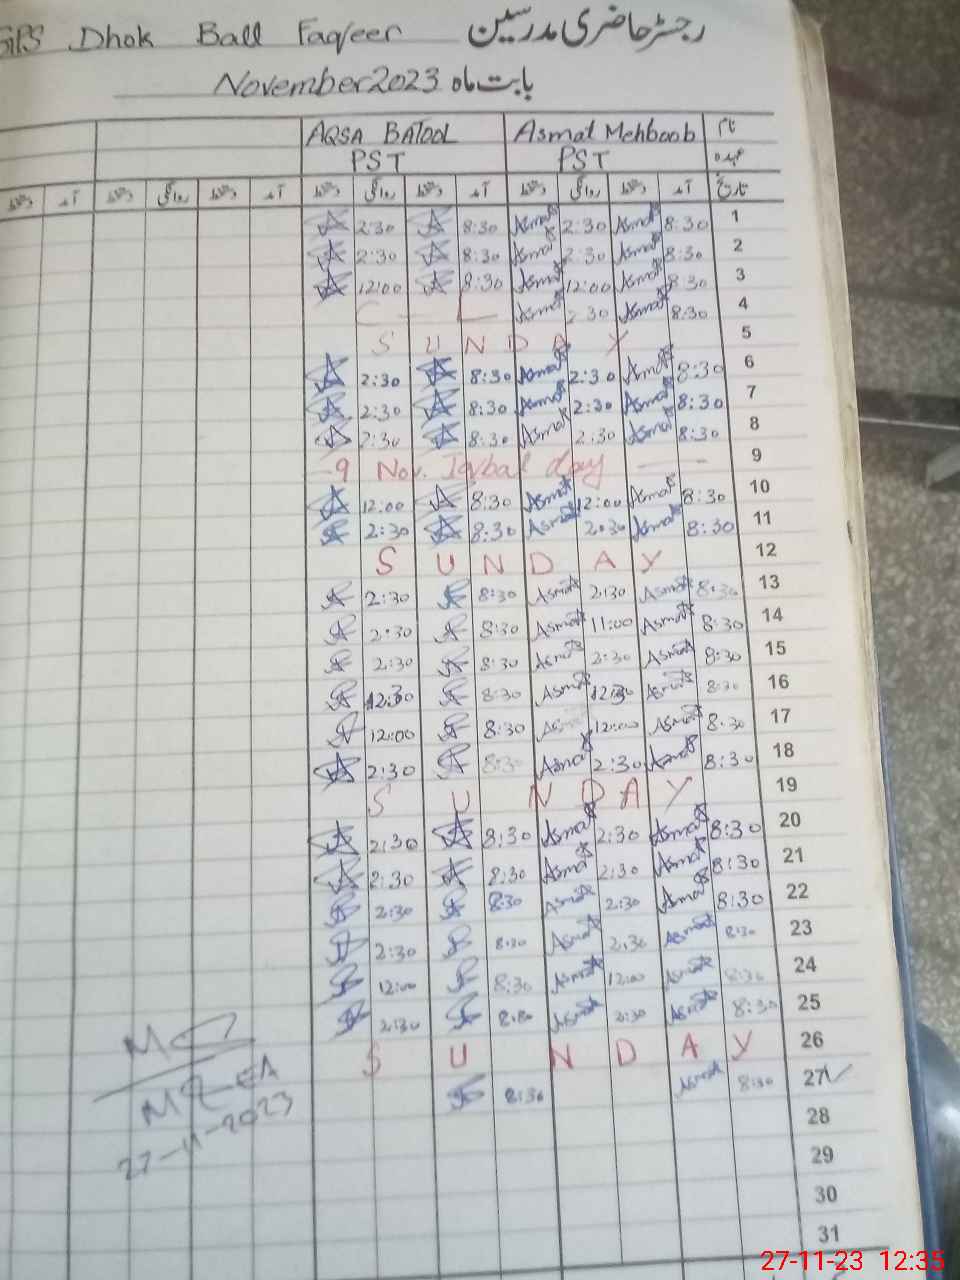 GPS Dhok Ball Faqeer رجسٹر حاضری مدرسین
November 2023 بابت ماہ
AQSA BATOOL Asmat Mehboob نام
PST PST عہدہ
دستخط آمد دستخط روانگی دستخط آمد دستخط روانگی دستخط آمد دستخط روانگی دستخط آمد تاریخ
2:30 8:30 Asmat 2:30 Asmat 8:30 1
2:30 8:30 Asmat 2:30 Asmat 8:30 2
12:00 8:30 Asmat 12:00 Asmat 8:30 3
C L Asmat 2:30 Asmat 8:30 4
SUNDAY 5
2:30 8:30 Asmat 2:30 Asmat 8:30 6
2:30 8:30 Asmat 2:30 Asmat 8:30 7
2:30 8:30 Asmat 2:30 Asmat 8:30 8
9 Nov. Iqbal day 9
12:00 8:30 Asmat 12:00 Asmat 8:30 10
2:30 8:30 Asmat 2:30 Asmat 8:30 11
SUNDAY 12
2:30 8:30 Asmat 2:30 Asmat 8:30 13
2:30 8:30 Asmat 11:00 Asmat 8:30 14
2:30 8:30 Asmat 2:30 Asmat 8:30 15
12:30 8:30 Asmat 12:30 Asmat 8:30 16
12:00 8:30 Asmat 12:00 Asmat 8:30 17
2:30 8:30 Asmat 2:30 Asmat 8:30 18
SUNDAY 19
2:30 8:30 Asmat 2:30 Asmat 8:30 20
2:30 8:30 Asmat 2:30 Asmat 8:30 21
2:30 8:30 Asmat 2:30 Asmat 8:30 22
2:30 8:30 Asmat 2:30 Asmat 8:30 23
12:00 8:30 Asmat 12:00 Asmat 8:30 24
2:30 8:30 Asmat 2:30 Asmat 8:30 25
SUNDAY 26
8:30 Asmat 8:30 27
28
29
30
31
MEA
27-11-2023
27-11-23 12:35